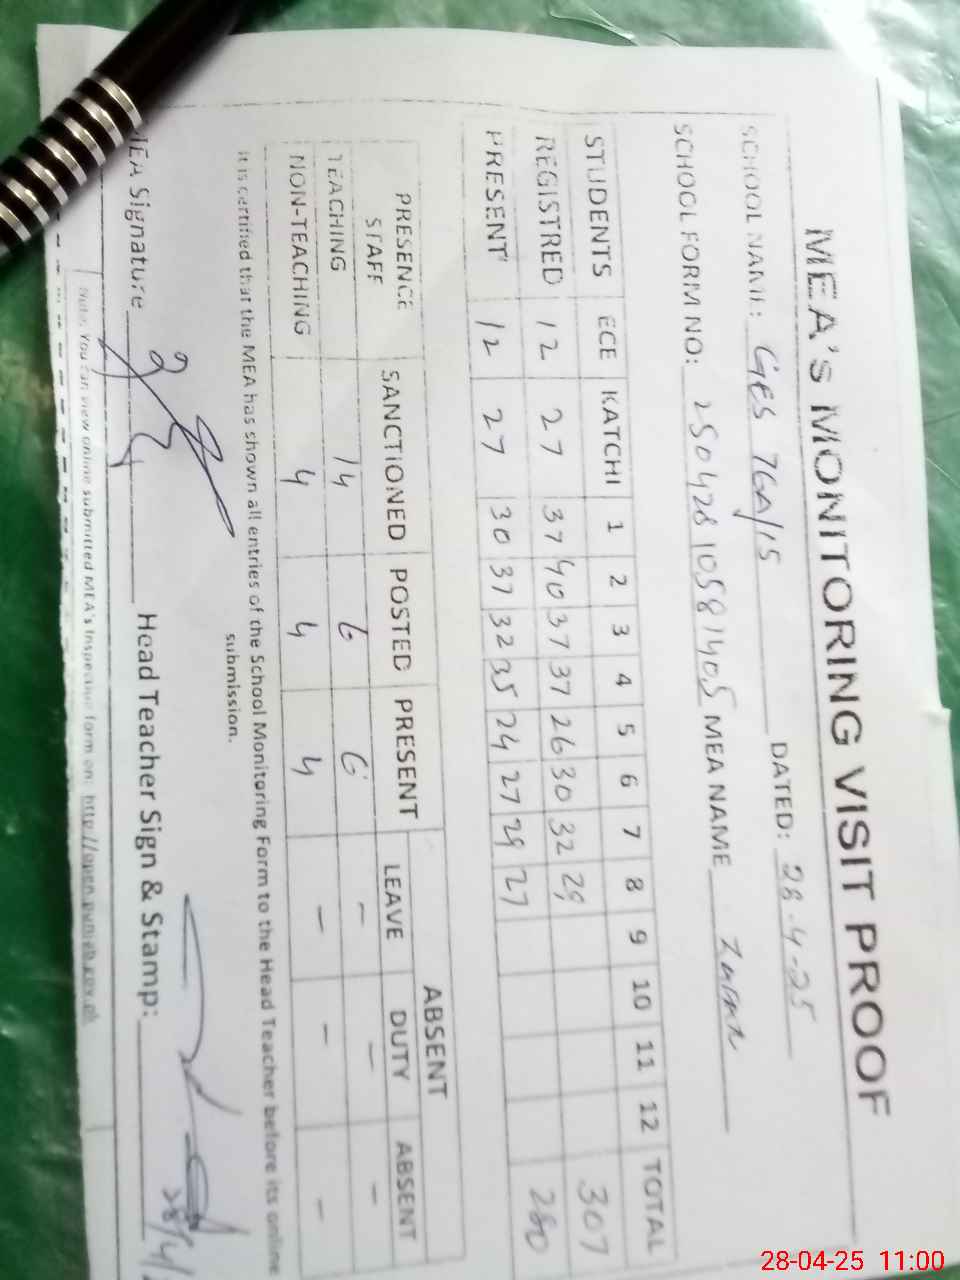 MEA'S MONITORING VISIT PROOF
SCHOOL NAME: GES 76A/15 DATED: 28-4-25
SCHOOL FORM NO: 25042810581405 MEA NAME
STUDENTS ECE KATCHI 1 2 3 4 5 6 7 8 9 10 11 12 TOTAL
REGISTRED 12 27 37 40 37 37 26 30 32 29 307
PRESENT 12 27 30 37 32 35 24 27 29 27 280
PRESENCE ABSENT
STAFF SANCTIONED POSTED PRESENT LEAVE DUTY ABSENT
TEACHING 14 6 6 - - -
NON-TEACHING 4 4 4 - - -
It is certified that the MEA has shown all entries of the School Monitoring Form to the Head Teacher before its online
submission.
MEA Signature Head Teacher Sign & Stamp:
28/4/
Note: You can view online submitted MEA's Inspection form on: http://open.punjab.gov.pk
28-04-25 11:00